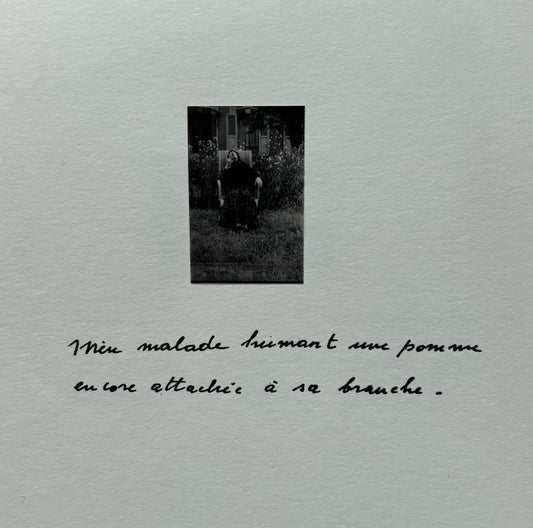 Mère malade humant une pomme
encore attachée à sa branche.